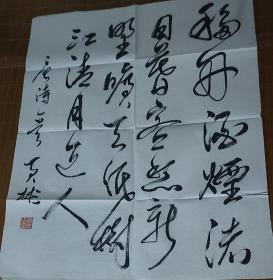 移舟泊烟渚
日暮客愁新
野旷天低树
江清月近人
唐诗一首